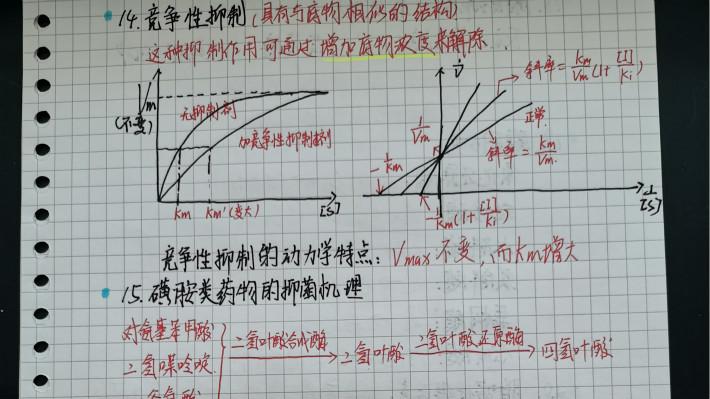 14.竞争性抑制(具有与底物相似的结构)
这种抑制作用可通过增加底物浓度来解除.
Vm
(不变)
无抑制剂
加竞争性抑制剂
Km
Km'(变大)
[S]
1/V
斜率=Km/Vm(1+[I]/Ki)
正常.
1/Vm
斜率=Km/Vm.
-1/Km
-1/Km(1+[I]/Ki)
1/[S]
竞争性抑制的动力学特点:Vmax不变,而Km增大
15.磺胺类药物的抑菌机理
对氨基苯甲酸
二氢喋呤啶
二氢叶酸合成酶
二氢叶酸
二氢叶酸还原酶
四氢叶酸